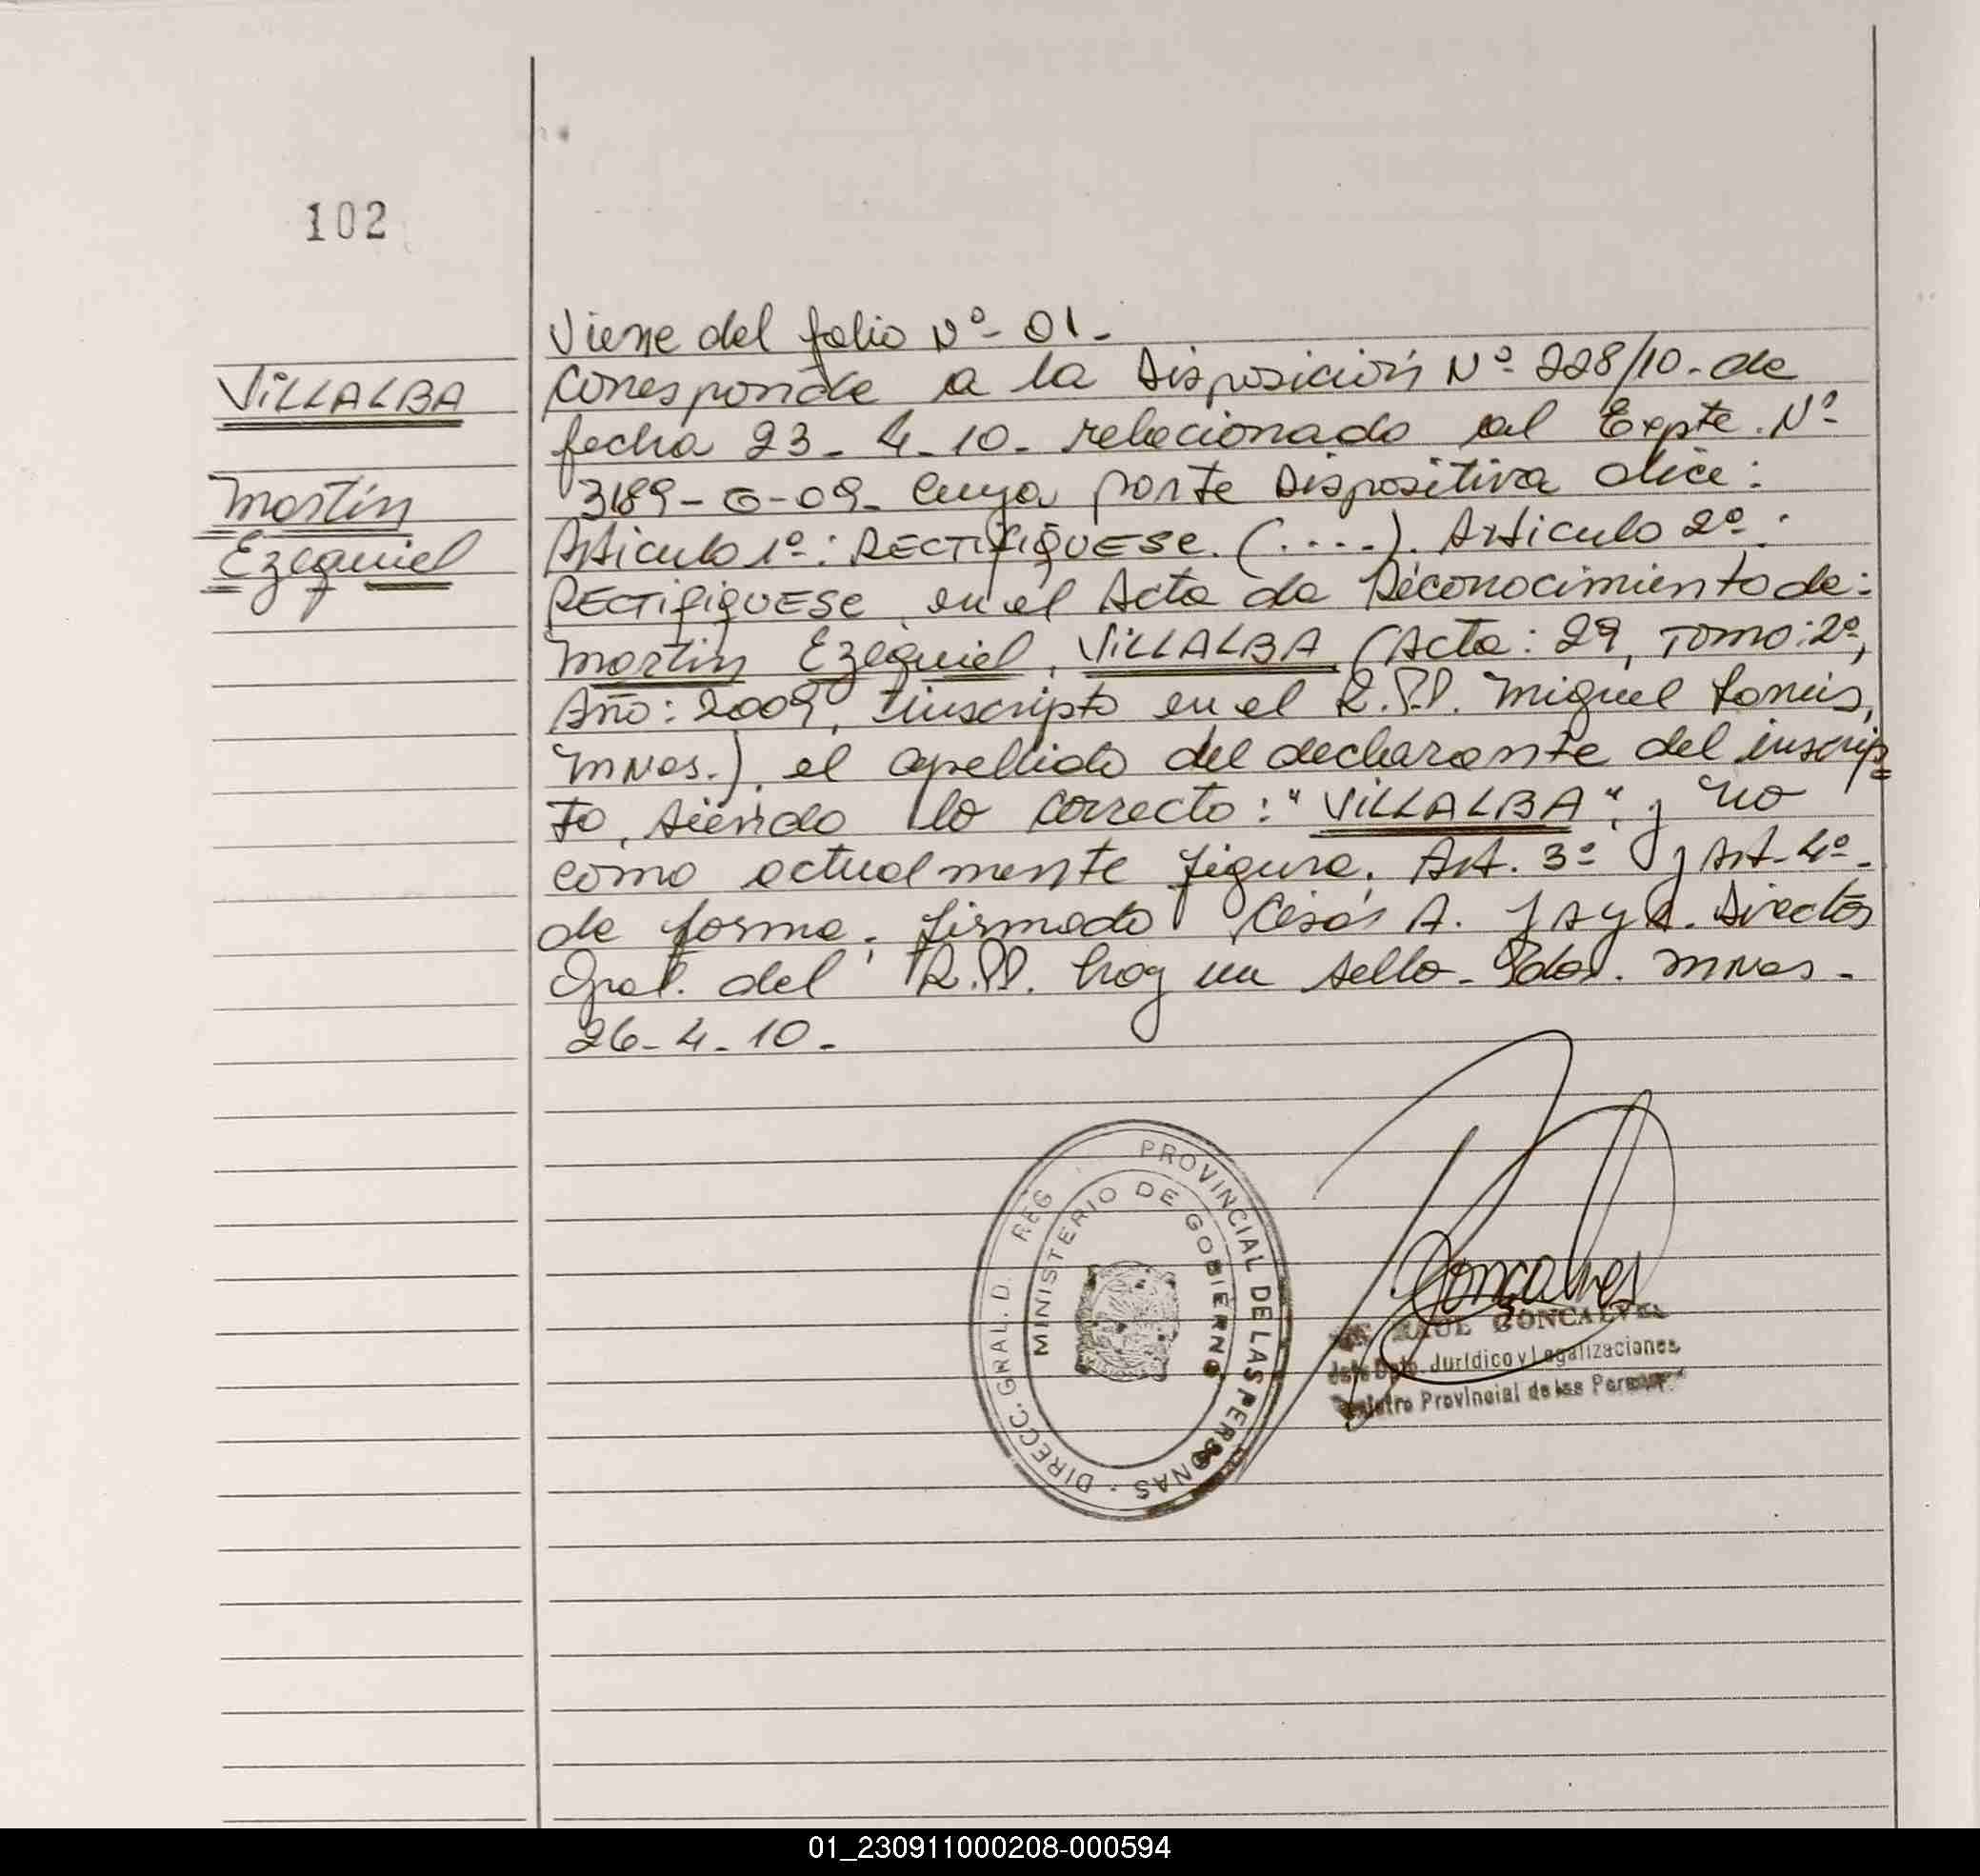 102
VILLALBA
Martín
Ezequiel
Viene del folio Nº- 01-
Corresponde a la Disposición Nº 228/10- de
fecha 23-4-10- relacionado al Expte. Nº-
3189-G-09- Cuya parte Dispositiva dice:
Articulo 1º: RECTIFIQUESE. (....). Articulo 2º:
RECTIFIQUESE, en el Acta de Reconocimiento de:
Martín Ezequiel, VILLALBA (Acta: 29, Tomo: 2º,
Año: 2009, inscripto en el R.P.P. Miguel Lanús,
Mnes.), el apellido del declarante del inscrip=
to, siendo lo correcto: "VILLALBA", y no
como actualmente figura. Art. 3º y Art- 4º-
de forma. firmado César A. JAYA. Director
Gral. del R.P.P. hay un sello- Pdas. Mnes-
26-4-10-
DIRECC. GRAL. D. REG PROVINCIAL DE LAS PERSONAS -
MINISTERIO DE GOBIERNO
Goncalves
RAUL GONCALVES
Jefe Dpto. Jurídico y Legalizaciones
Registro Provincial de las Personas
01_230911000208-000594